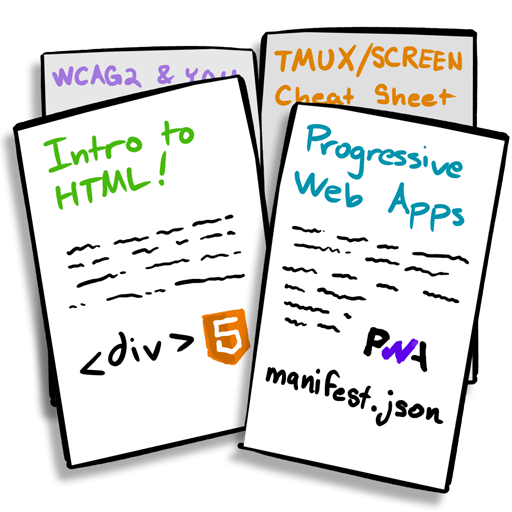 WCAG2 & YOU
TMUX/SCREEN
Cheat Sheet
Intro to
HTML!
<div> 5
Progressive
Web Apps
PWA
manifest.json